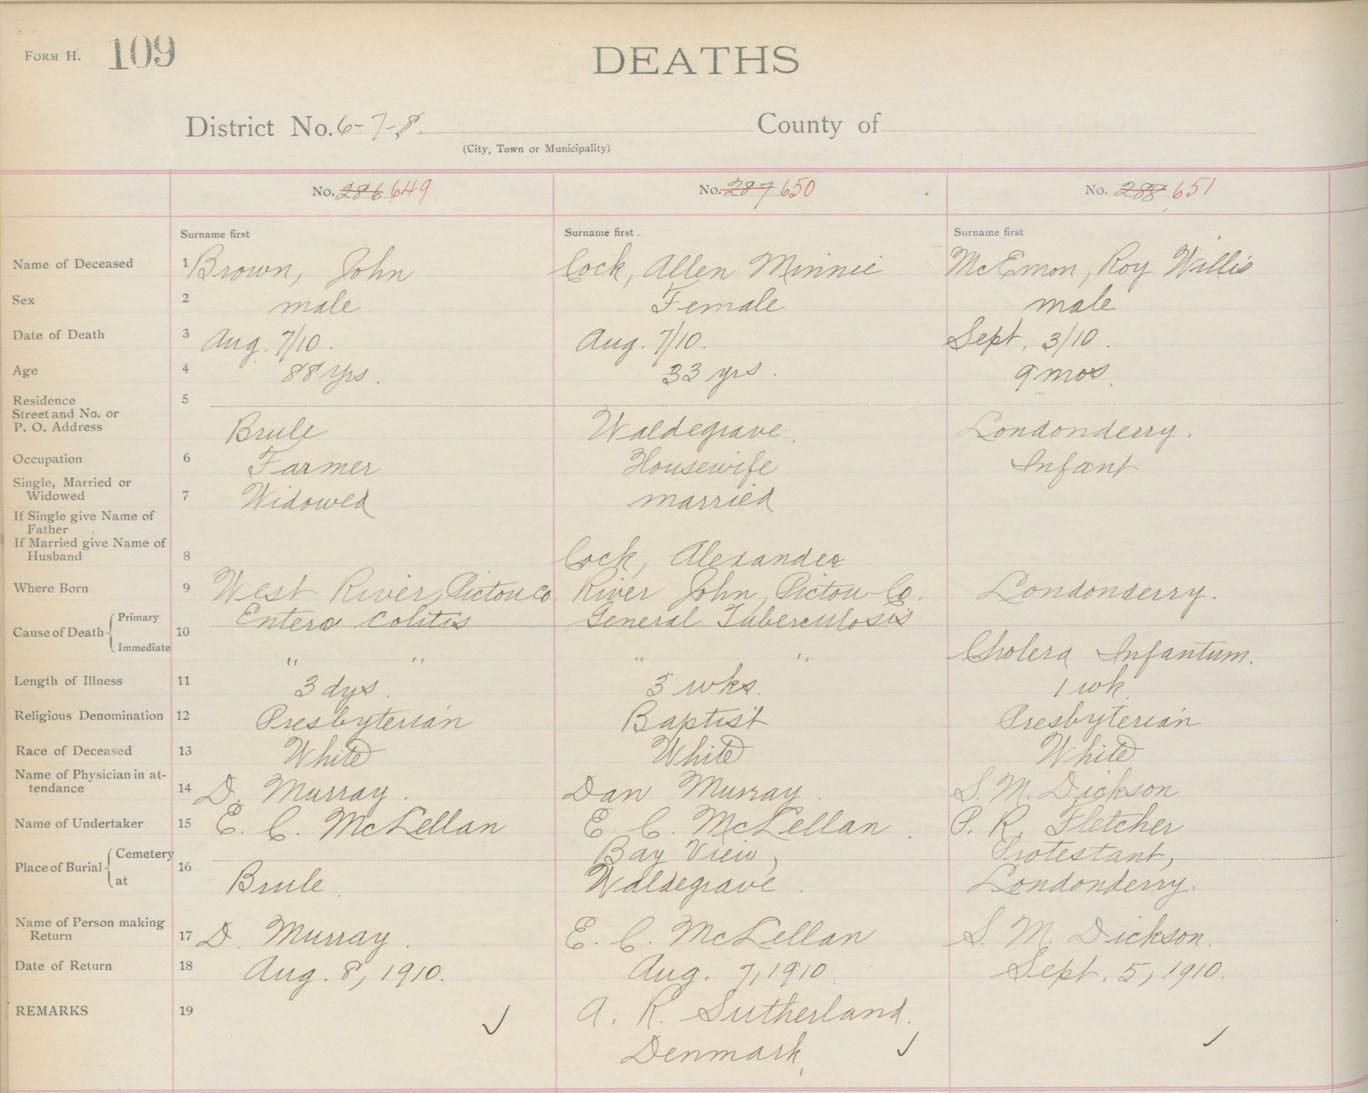 FORM H. 109
DEATHS
District No. 6-7-8. County of
(City, Town or Municipality)
No. 286 649 No. 287 650 No. 288 651
Surname first Surname first Surname first
Name of Deceased 1 Brown, John Cock, Allen Minnie McEmon, Roy Willis
Sex 2 male Female male
Date of Death 3 Aug. 7/10. Aug. 7/10. Sept. 3/10.
Age 4 88 yrs. 33 yrs. 9 mos.
Residence 5
Street and No. or
P. O. Address Brule Waldegrave. Londonderry.
Occupation 6 Farmer Housewife Infant
Single, Married or
Widowed 7 Widowed married
If Single give Name of
Father
If Married give Name of
Husband 8 Cock, Alexander
Where Born 9 West River, Pictou Co. River John, Pictou Co. Londonderry.
Cause of Death 10 Primary Entero Colitis General Tuberculosis
Immediate " " " " Cholera Infantum.
Length of Illness 11 3 dys. 3 wks. 1 wk.
Religious Denomination 12 Presbyterian Baptist Presbyterian
Race of Deceased 13 White White White
Name of Physician in at-
tendance 14 D. Murray. Dan Murray S. M. Dickson
Name of Undertaker 15 E. C. McLellan E. C. McLellan. P. R. Fletcher
Place of Burial 16 Cemetery Bay View, Protestant,
at Brule. Waldegrave. Londonderry.
Name of Person making
Return 17 D. Murray. E. C. McLellan S. M. Dickson.
Date of Return 18 Aug. 8, 1910. Aug. 7, 1910 Sept. 5, 1910.
REMARKS 19 A. R. Sutherland.
Denmark,